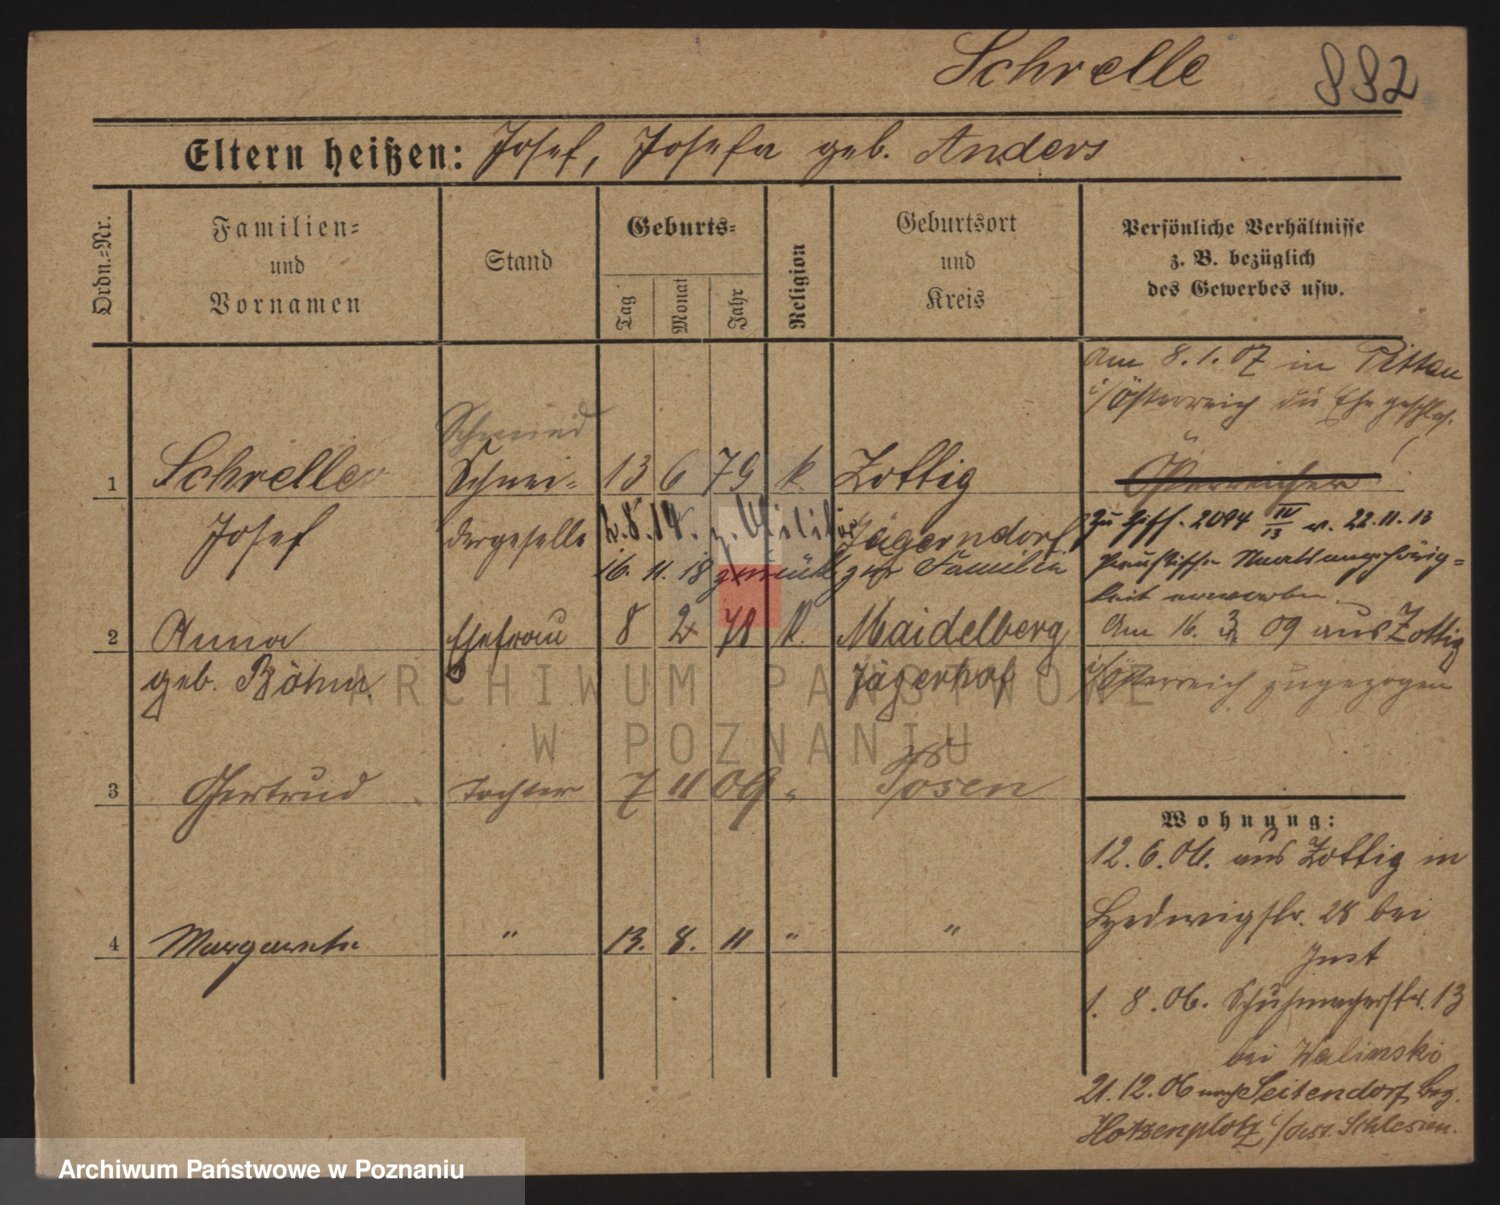 Schrelle 882
Eltern heißen: Josef, Josefa geb. Anders
Ordn.-Nr.
Familien-
und
Vornamen
Stand
Geburts-
Tag
Monat
Jahr
Religion
Geburtsort
und
Kreis
Persönliche Verhältnisse
z. B. bezüglich
des Gewerbes usw.
Am 8.1.07 in
i/Österreich die Ehe geschloss.
Schmied
1 Schreller Schnei- 13 6 79 k. Zottig
Österreicher
Josef dergeselle 2.8.14. z. Militär Jägerndorf
zu Ziff. 2094 IV/13 v. 22.11.13
16. 11. 18 zurück zur Familie
Preußische Staatsangehörig-
keit erworben.
2 Anna Ehefrau 8 2 78 k. Maidelberg
geb. Böhm Jägerhof
Am 16. 3 09 aus Zottig
i/Österreich zugezogen
3 Gertrud Tochter 7 11 09 " Posen
4 Margarete " 13. 8. 11 " "
Wohnung:
12.6.06. aus Zottig in
Hedwigstr. 28 bei
Just
1. 8.06. Schuhmacherstr. 13
bei Walinski
21.12.06 nach Seitendorf, Bez.
Hotzenplotz i/östr. Schlesien.
ARCHIWUM PAŃSTWOWE
W POZNANIU
Archiwum Państwowe w Poznaniu